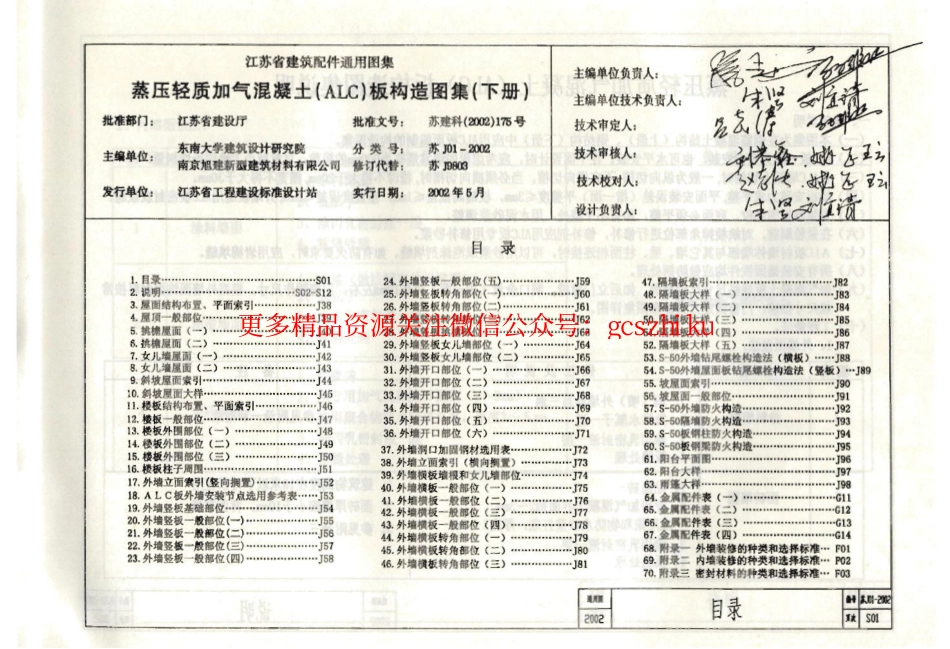 江苏省建筑配件通用图集
蒸压轻质加气混凝土(ALC)板构造图集(下册)
批准部门: 江苏省建设厅 批准文号: 苏建科(2002)175号
主编单位: 东南大学建筑设计研究院 分类号: 苏J01-2002
南京旭建新型建筑材料有限公司 修订代替: 苏J9803
发行单位: 江苏省工程建设标准设计站 实行日期: 2002年5月
主编单位负责人:
主编单位技术负责人:
技术审定人:
技术审核人:
技术校对人:
设计负责人:
目录
1. 目录 S01
2. 说明 S02-S12
3. 屋面结构布置、平面索引 J38
4. 屋顶一般部位
5. 挑檐屋面(一)
6. 挑檐屋面(二) J41
7. 女儿墙屋面(一) J42
8. 女儿墙屋面(二) J43
9. 斜坡屋面索引 J44
10. 斜坡屋面大样 J45
11. 楼板结构布置、平面索引 J46
12. 楼板一般部位 J47
13. 楼板外围部位(一) J48
14. 楼板外围部位(二) J49
15. 楼板外围部位(三) J50
16. 楼板柱子周围 J51
17. 外墙立面索引(竖向搁置) J52
18. ALC板外墙安装节点选用参考表 J53
19. 外墙竖板基础部位 J54
20. 外墙竖板一般部位(一) J55
21. 外墙竖板一般部位(二) J56
22. 外墙竖板一般部位(三) J57
23. 外墙竖板一般部位(四) J58
24. 外墙竖板一般部位(五) J59
25. 外墙竖板转角部位(一) J60
26. 外墙竖板转角部位(二) J61
J62
29. 外墙竖板女儿墙部位(一) J64
30. 外墙竖板女儿墙部位(二) J65
31. 外墙开口部位(一) J66
32. 外墙开口部位(二) J67
33. 外墙开口部位(三) J68
34. 外墙开口部位(四) J69
35. 外墙开口部位(五) J70
36. 外墙开口部位(六) J71
37. 外墙洞口加固钢材选用表 J72
38. 外墙立面索引(横向搁置) J73
39. 外墙横板墙根和女儿墙部位 J74
40. 外墙横板一般部位(一) J75
41. 外墙横板一般部位(二) J76
42. 外墙横板一般部位(三) J77
43. 外墙横板一般部位(四) J78
44. 外墙横板转角部位(一) J79
45. 外墙横板转角部位(二) J80
46. 外墙横板转角部位(三) J81
47. 隔墙板索引 J82
48. 隔墙板大样(一) J83
49. 隔墙板大样(二) J84
50. 隔墙板大样(三) J85
(四) J86
52. 隔墙板大样(五) J87
53. S-50外墙钻尾螺栓构造法(横板) J88
54. S-50外墙屋面板钻尾螺栓构造法(竖板) J89
55. 坡屋面索引 J90
56. 坡屋面一般部位 J91
57. S-50外墙防火构造 J92
58. S-50隔墙防火构造 J93
59. S-50板钢柱防火构造 J94
60. S-50板钢梁防火构造 J95
61. 阳台平面图 J96
62. 阳台大样 J97
63. 雨篷大样 J98
64. 金属配件表(一) G11
65. 金属配件表(二) G12
66. 金属配件表(三) G13
67. 金属配件表(四) G14
68. 附录一 外墙装修的种类和选择标准 F01
69. 附录二 内墙装修的种类和选择标准 F02
70. 附录三 密封材料的种类和选择标准 F03
更多精品资源关注微信公众号: gcszhiku
通用图 2002 目录 编号 苏J01-2002
页次 S01